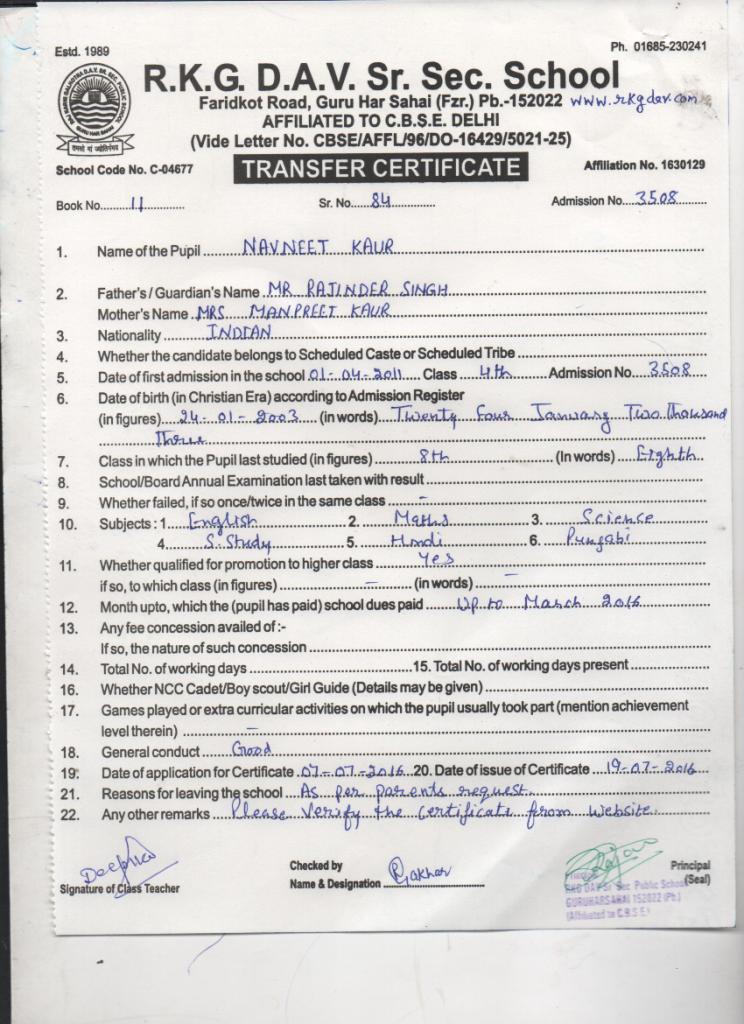 Estd. 1989
Ph. 01685-230241
R.K.G. D.A.V. Sr. Sec. School
Faridkot Road, Guru Har Sahai (Fzr.) Pb.-152022 www.rkgdav.com
AFFILIATED TO C.B.S.E. DELHI
(Vide Letter No. CBSE/AFFL/96/DO-16429/5021-25)
School Code No. C-04677
TRANSFER CERTIFICATE
Affiliation No. 1630129
Book No. 11 Sr. No. 84 Admission No. 3508
1. Name of the Pupil NAVNEET KAUR
2. Father's / Guardian's Name MR RAJINDER SINGH
Mother's Name MRS MANPREET KAUR
3. Nationality INDIAN
4. Whether the candidate belongs to Scheduled Caste or Scheduled Tribe
5. Date of first admission in the school 01-04-2011 Class 4th Admission No. 3508
6. Date of birth (in Christian Era) according to Admission Register
(in figures) 24-01-2003 (in words) Twenty Four January Two thousand
Three
7. Class in which the Pupil last studied (in figures) 8th (In words) Eighth
8. School/Board Annual Examination last taken with result
9. Whether failed, if so once/twice in the same class -
10. Subjects : 1. English 2. Maths 3. Science
4. S. Study 5. Hindi 6. Punjabi
11. Whether qualified for promotion to higher class Yes
if so, to which class (in figures) - (in words) -
12. Month upto, which the (pupil has paid) school dues paid Up to March 2016
13. Any fee concession availed of :-
If so, the nature of such concession
14. Total No. of working days 15. Total No. of working days present
16. Whether NCC Cadet/Boy scout/Girl Guide (Details may be given)
17. Games played or extra curricular activities on which the pupil usually took part (mention achievement
level therein) -
18. General conduct Good
19. Date of application for Certificate 07-07-2016 20. Date of issue of Certificate 19-07-2016
21. Reasons for leaving the school As per parents request.
22. Any other remarks Please Verify the certificate from Website.
Signature of Class Teacher
Checked by
Name & Designation
Principal
(Seal)
Principal
RKG DAV Sr. Sec. Public School
GURUHARSAHAI 152022 (Pb.)
(Affiliated to C.B.S.E.)